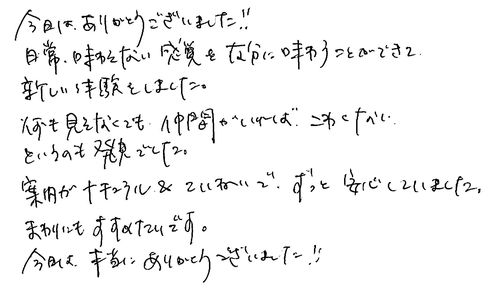 今日は、ありがとうございました!!
日常、味わえない感覚を存分に味わうことができて
新しい体験をしました。
何も見えなくても、仲間がいれば、こわくない
というのも発見でした。
案内がナチュラル&ていねいで、ずっと安心していました。
まわりにもすすめたいです。
今日は、本当にありがとうございました!!